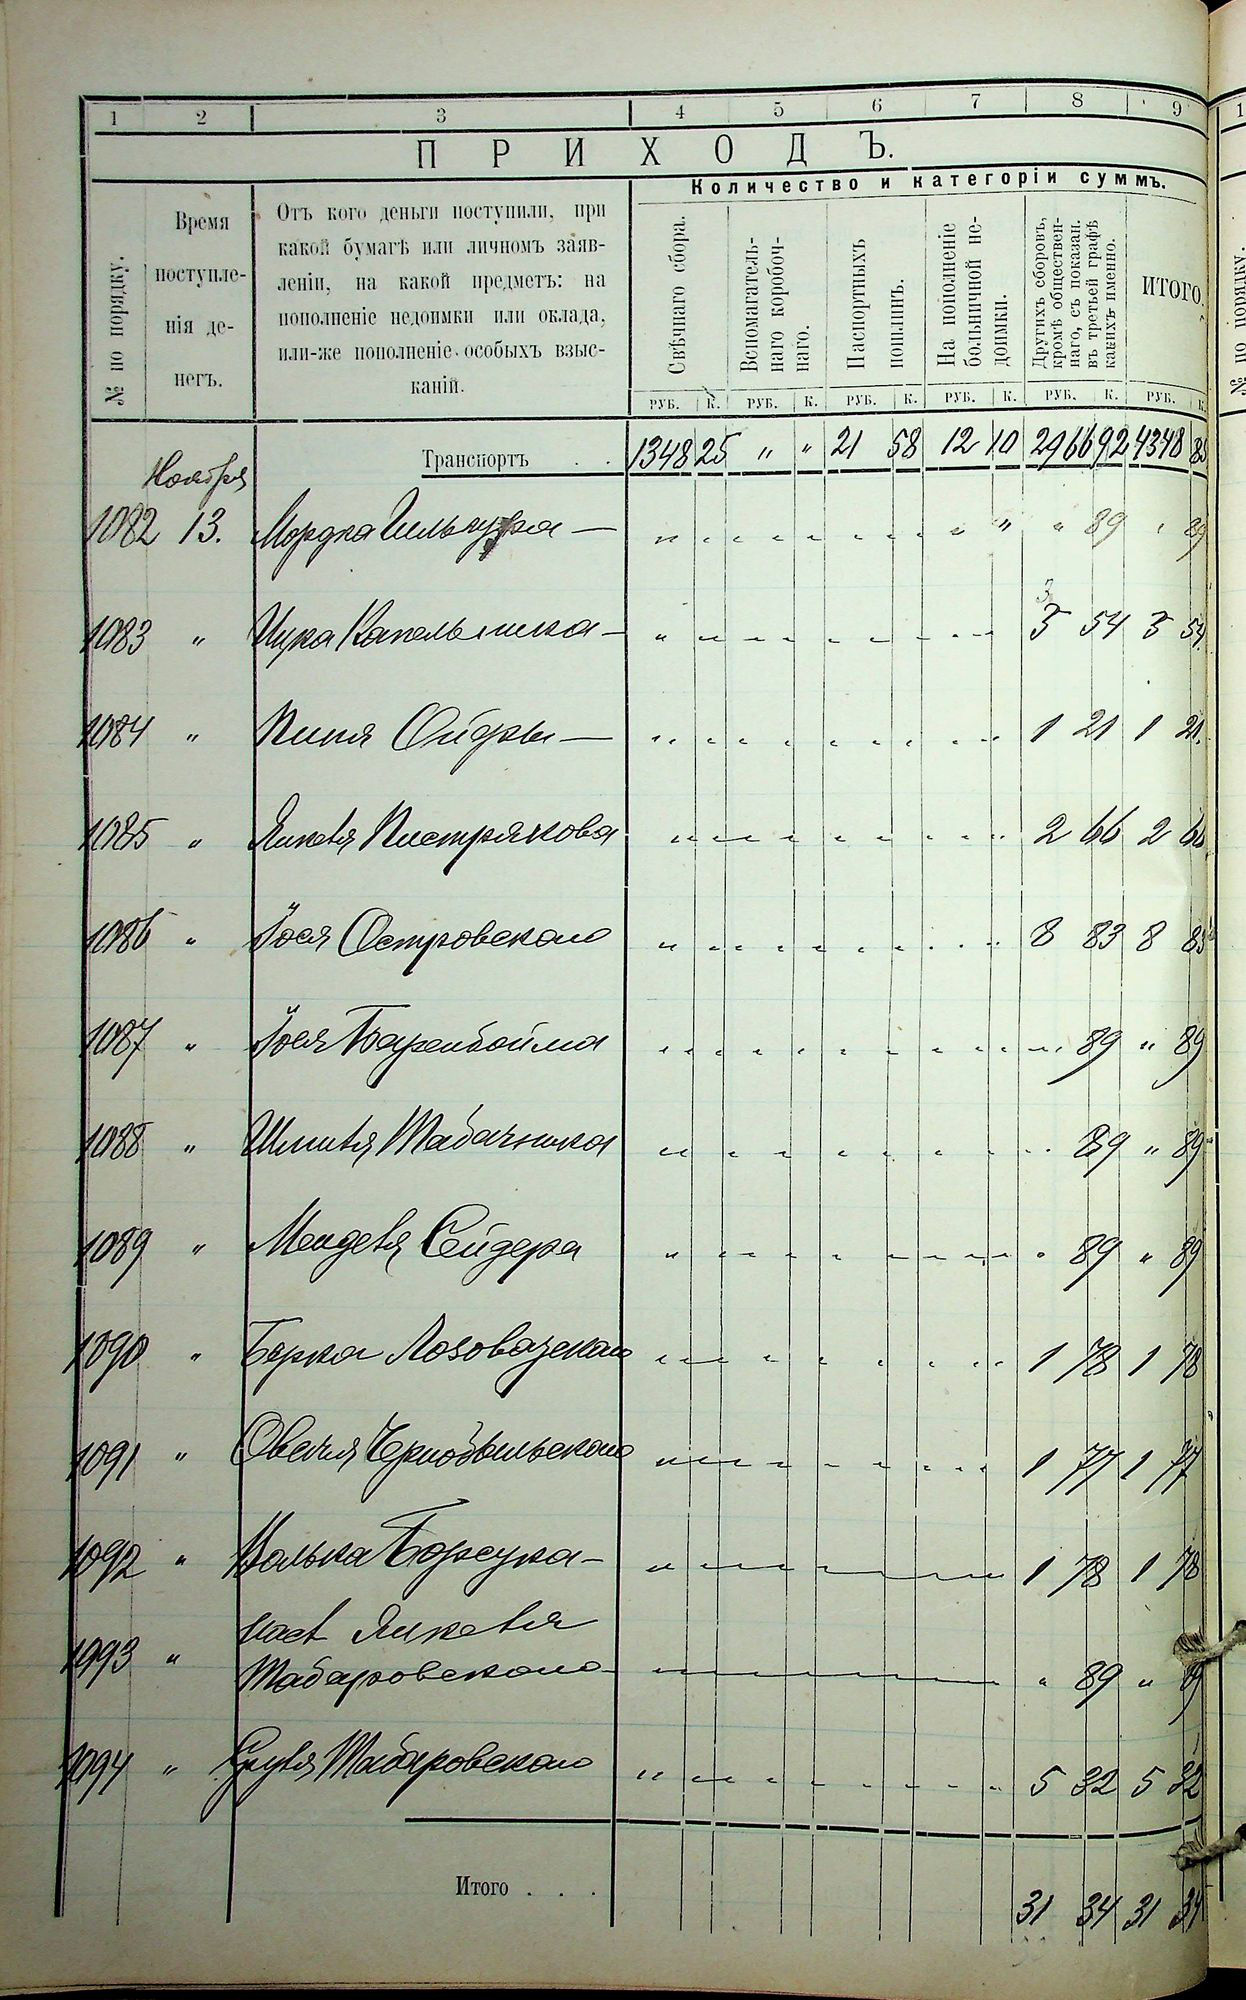 1 2 3 4 5 6 7 8 9
ПРИХОДЪ.
Количество и категоріи суммъ.
№ по порядку.
Время
поступле-
нія де-
негъ.
Отъ кого деньги поступили, при
какой бумагѣ или личномъ заяв-
леніи, на какой предметъ: на
пополненіе недоимки или оклада,
или-же пополненіе особыхъ взыс-
каній.
Свѣчнаго сбора.
Вспомагатель-
наго коробоч-
наго.
Паспортныхъ
пошлинъ.
На пополненіе
больничной не-
доимки.
Другихъ сборовъ,
кромѣ обществен-
наго, съ показан.
въ третьей графѣ
какихъ именно.
ИТОГО.
РУБ. К. РУБ. К. РУБ. К. РУБ. К. РУБ. К. РУБ. К.
Транспортъ . . 1348 25 " " 21 58 12 10 2966 92 4348 85
Ноября
1082 13. Мордка — " " " 89 " 89
1083 " Ицка Капельника — " 3 54 3 54.
1084 " Пиня — " 1 21 1 21.
1085 " Янкеля Пистрякова " 2 66 2 66
1086 " Іося Островского " 8 83 8 83
1087 " Іося Баренбойма " 89 " 89
1088 " Шмиля Табачника " 89 " 89
1089 " Менделя Сейдера " " 89 " 89
1090 " Берка " 1 78 1 78
1091 " Овсея Чернобыльского " 1 77 1 77
1092 " Волька Борсука — " 1 78 1 78
1993 " насл Янкеля
Табаровского — " 89 " 89
1094 " Сруля Табаровского " 5 32 5 32
Итого . . . 31 34 31 34